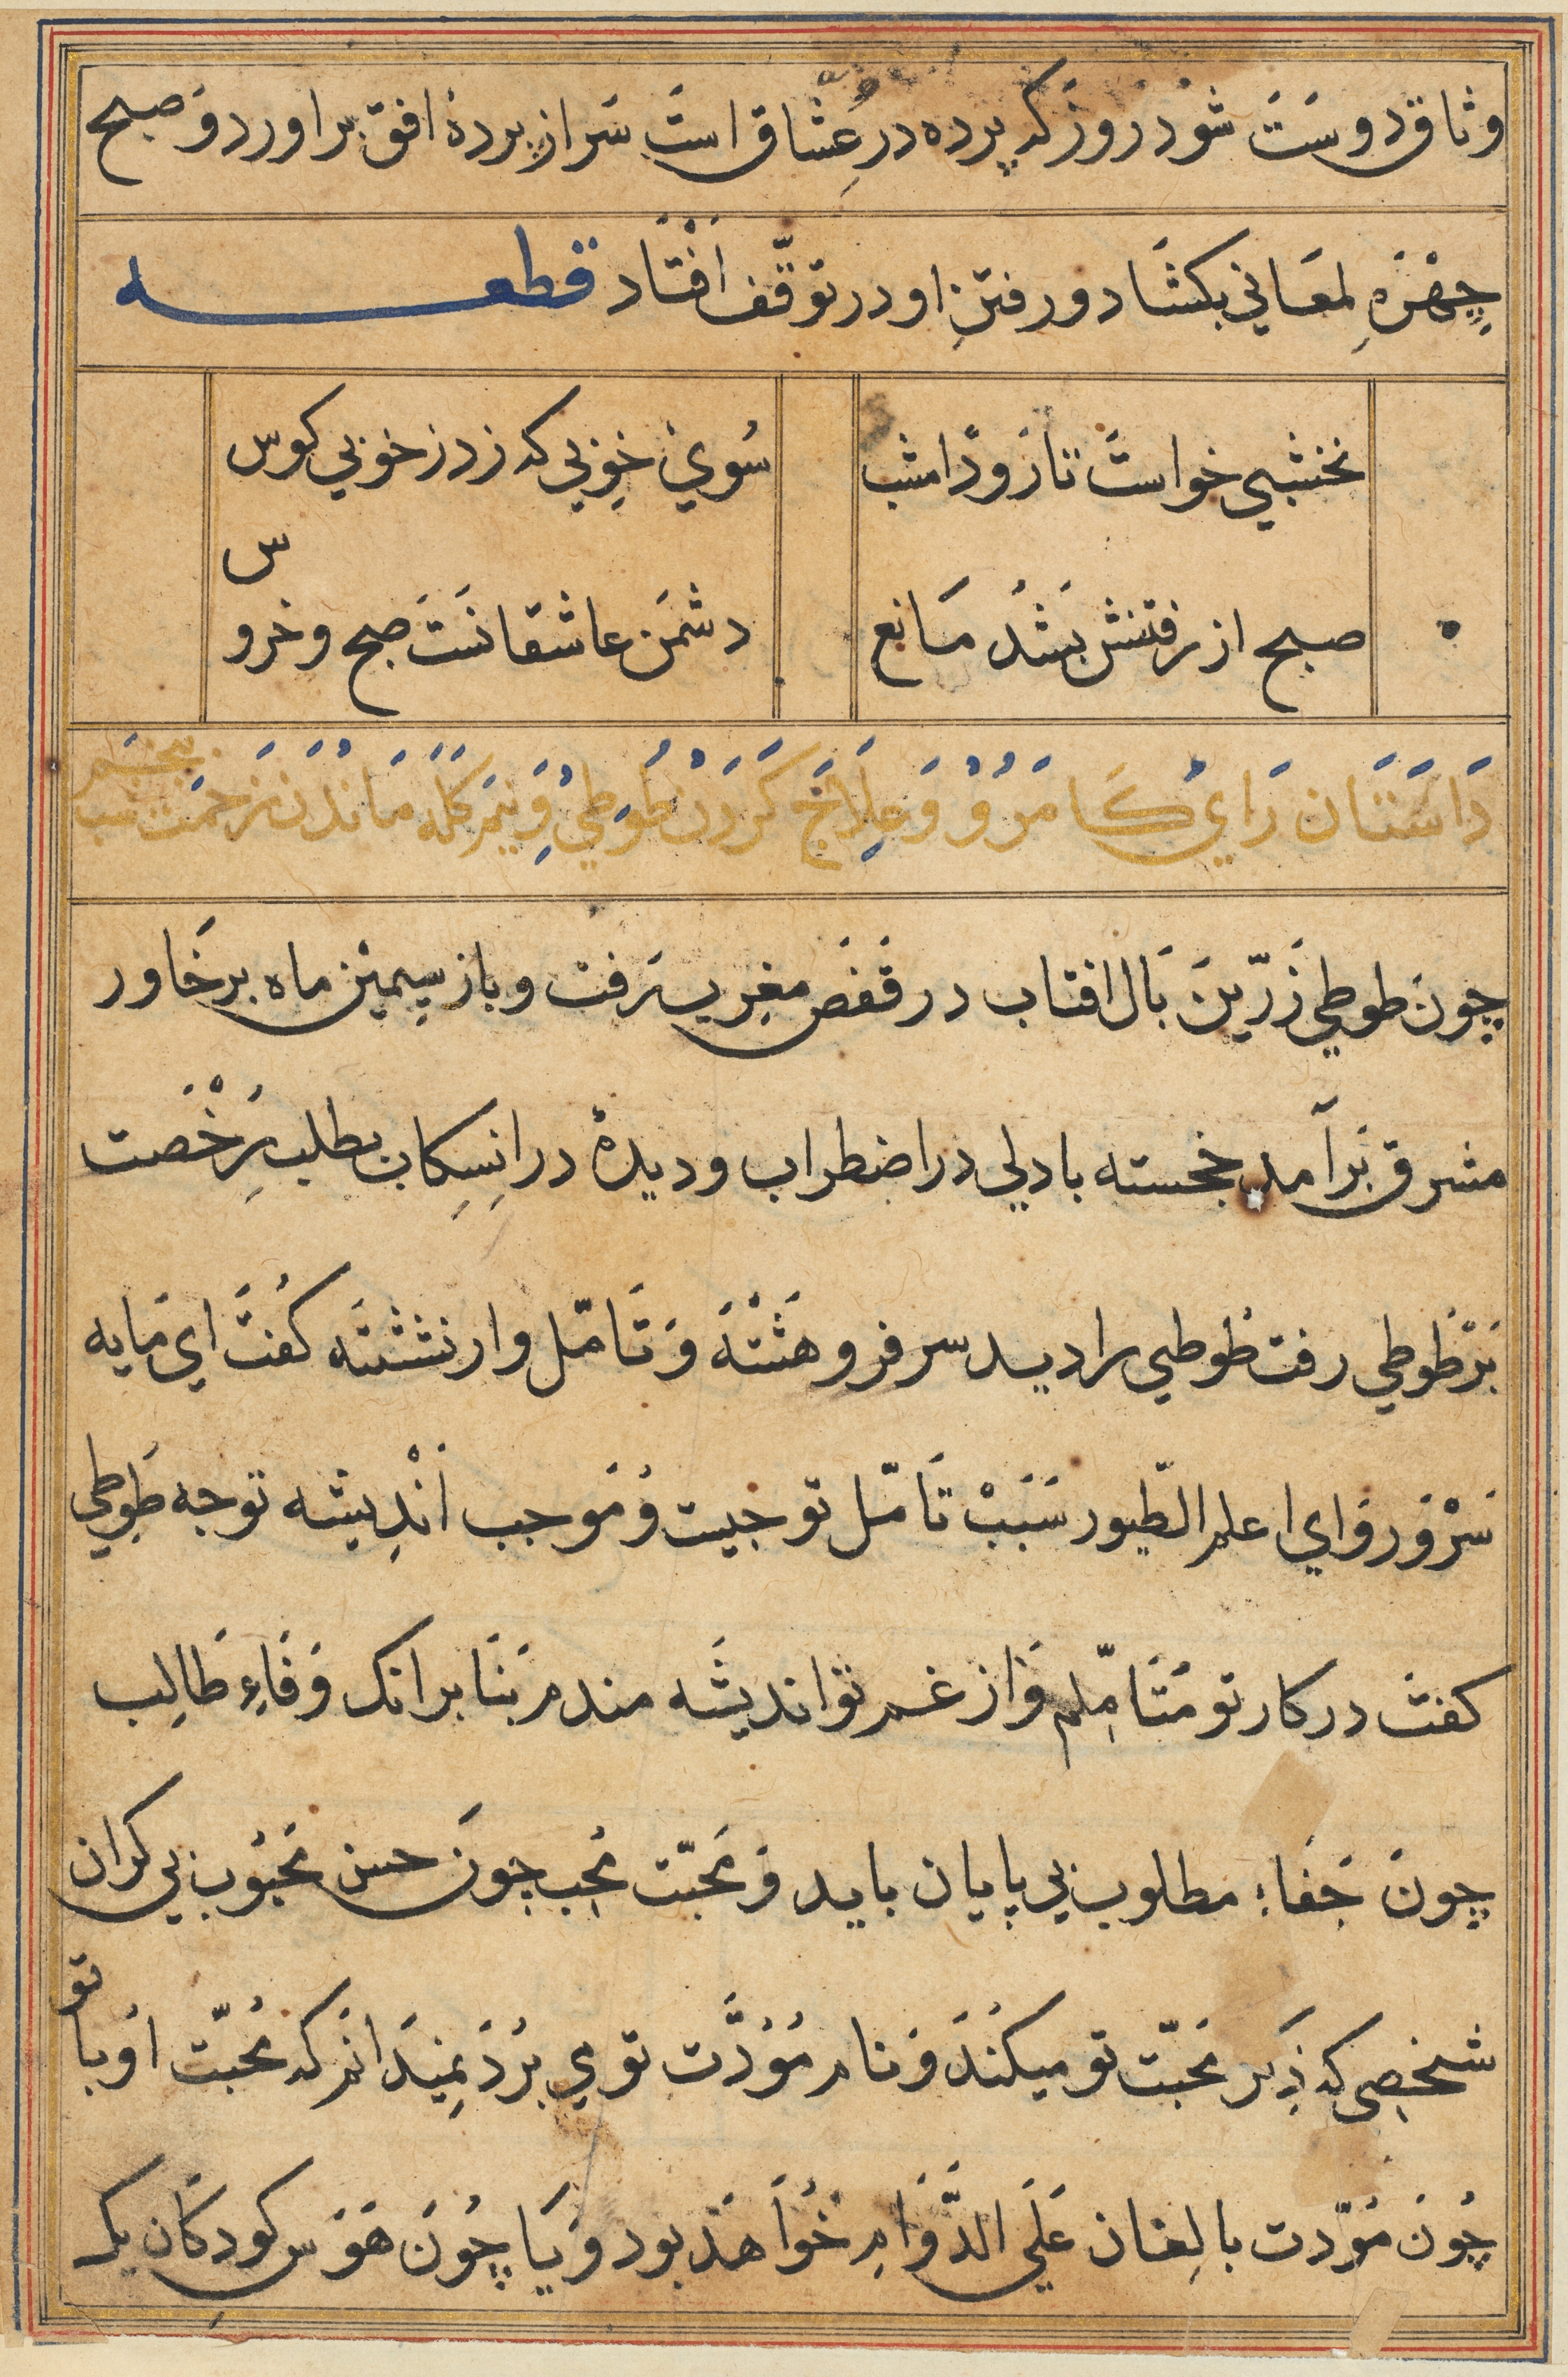 وثاق دوست شود روز که پرده در عشاق است سر از پردۀ افق براورد و صبح
چهرۀ لمعاني بکشاد و رفتن او در توقف افتاد قطعه
نخشبي خواست تا رود امشب سوي خوبي که زد ز خوبي کوس
صبح از رفتنش بشد مانع دشمن عاشقانست صبح و خروس
داستان راي کامرو و علاج کردن طوطي و نیم کله ماندن زحمت شب پنجم
چون طوطي زرین بال افتاب در قفص مغرب رفت و باز سیمین ماه بر خاور
مشرق برآمد خجسته با دلي در اضطراب و دیدۀ در انسکاب بطلب رخصت
بر طوطي رفت طوطي را دید سر فرو هشته و تامل وار نشسته کفت اي مایه
سرور و اي اعلم الطیور سبب تامل تو چیست و موجب اندیشه تو چه طوطي
کفت در کار تو متاملم و از غم تو اندیشه مندم بنا برانک وفاء طالب
چون جفاء مطلوب بي پایان باید و محبت محب چون حسن محبوب بي کران
شخصي که ذکر محبت تو میکند و نام مودت توي برد نمیدانم که محبت او با تو
چون مودت بالغان علي الدوام خواهد بود و یا چون هوس کودکان یک